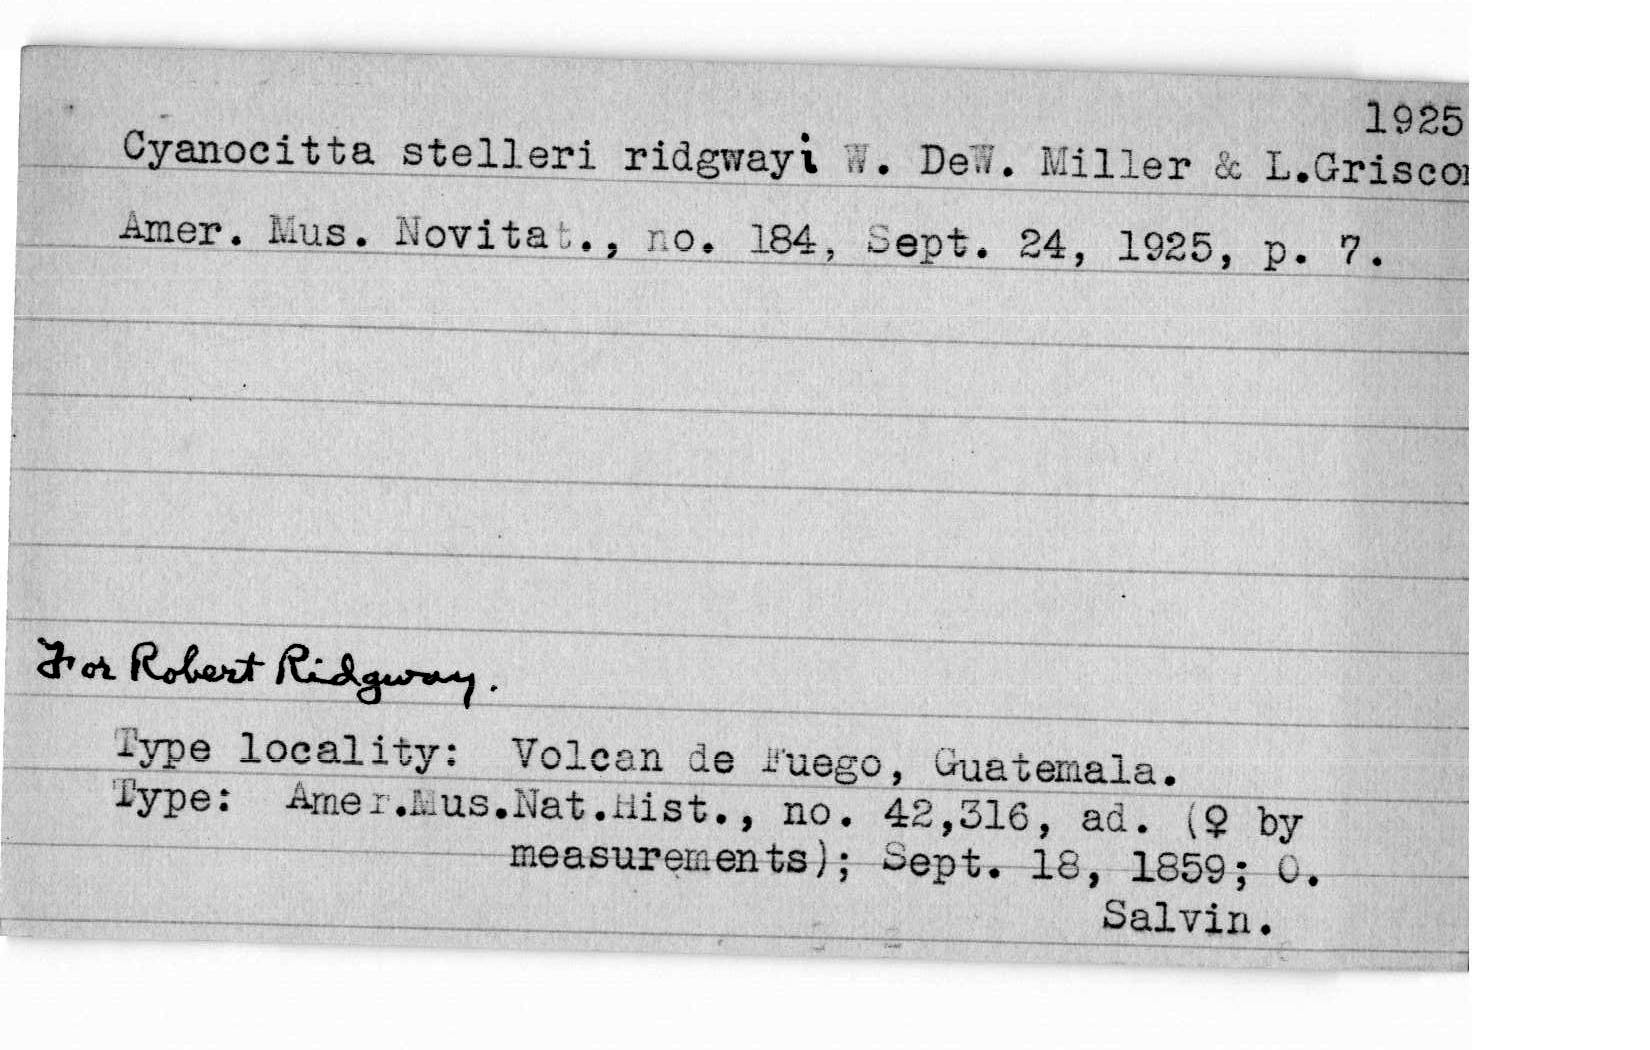 1925
Cyanocitta stelleri ridgwayi W. DeW. Miller & L.Griscom
Amer. Mus. Novitat., no. 184, Sept. 24, 1925, p. 7.
For Robert Ridgway.
Type locality: Volcan de Fuego, Guatemala.
Type: Amer.Mus.Nat.Hist., no. 42,316, ad. (♀ by
measurements); Sept. 18, 1859; O.
Salvin.